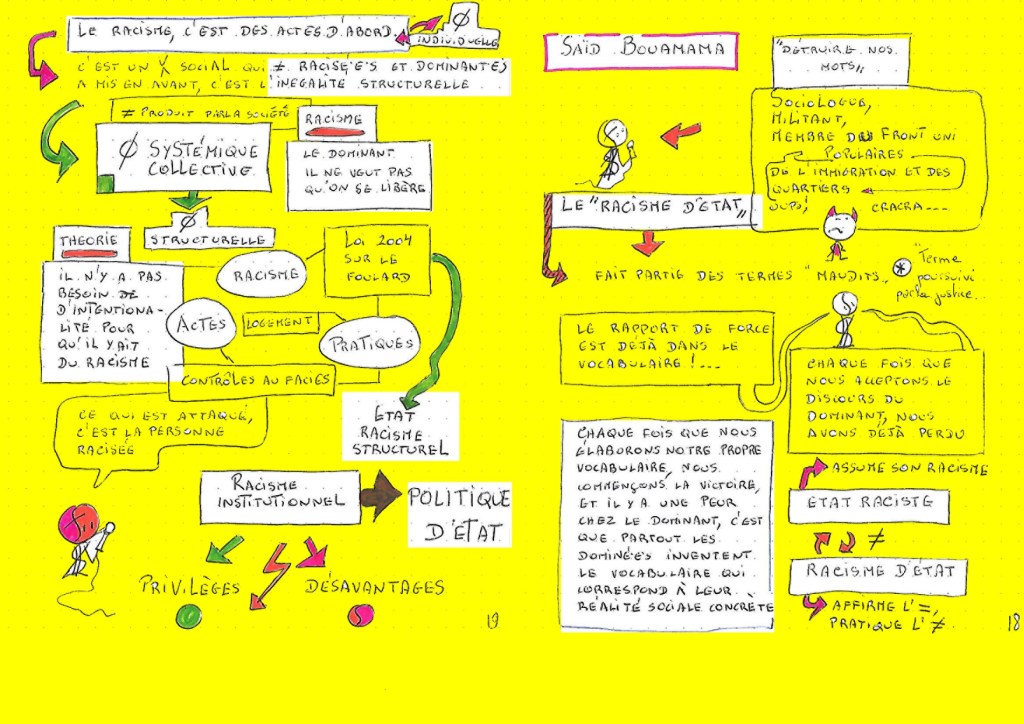 LE RACISME, C'EST DES ACTES D'ABORD.
Ø
INDIVIDUELLE
C'EST UN SOCIAL QUI ≠ RACISÉ·E·S ET DOMINANT·E·S
A MIS EN AVANT, C'EST L'INEGALITÉ STRUCTURELLE
≠ PRODUIT PAR LA SOCIÉTÉ
Ø SYSTÉMIQUE
COLLECTIVE
RACISME
LE DOMINANT
IL NE VEUT PAS
QU'ON SE LIBÈRE
Ø
STRUCTURELLE
THEORIE
IL N'Y A PAS
BESOIN DE
D'INTENTIONA-
LITÉ POUR
QU'IL Y AIT
DU RACISME
RACISME
LOI 2004
SUR LE
FOULARD
ACTES
LOGEMENT
PRATIQUES
CONTRÔLES AU FACIÈS
CE QUI EST ATTAQUÉ,
C'EST LA PERSONNE
RACISÉE
ETAT
RACISME
STRUCTUREL
RACISME
INSTITUTIONNEL
POLITIQUE
D'ÉTAT
PRIVILÈGES
DÉSAVANTAGES
19
SAÏD BOUAMAMA
"DÉTRUIRE NOS
MOTS"
SOCIOLOGUE,
MILITANT,
MEMBRE DU FRONT UNI
POPULAIRES
DE L'IMMIGRATION ET DES
QUARTIERS
OUPS!
CRACRA...
LE "RACISME D'ÉTAT"
FAIT PARTIE DES TERMES "MAUDITS"
* "Terme
poursuivi
par la justice...
LE RAPPORT DE FORCE
EST DÉJÀ DANS LE
VOCABULAIRE !...
CHAQUE FOIS QUE
NOUS ACCEPTONS LE
DISCOURS DU
DOMINANT, NOUS
AVONS DÉJÀ PERDU
CHAQUE FOIS QUE NOUS
ÉLABORONS NOTRE PROPRE
VOCABULAIRE, NOUS
COMMENÇONS LA VICTOIRE,
ET IL Y A UNE PEUR
CHEZ LE DOMINANT, C'EST
QUE PARTOUT LES
DOMINÉ·E·S INVENTENT
LE VOCABULAIRE QUI
CORRESPOND À LEUR
RÉALITÉ SOCIALE CONCRÈTE
ASSUME SON RACISME
ETAT RACISTE
≠
RACISME D'ÉTAT
AFFIRME L'=,
PRATIQUE L'≠.
18